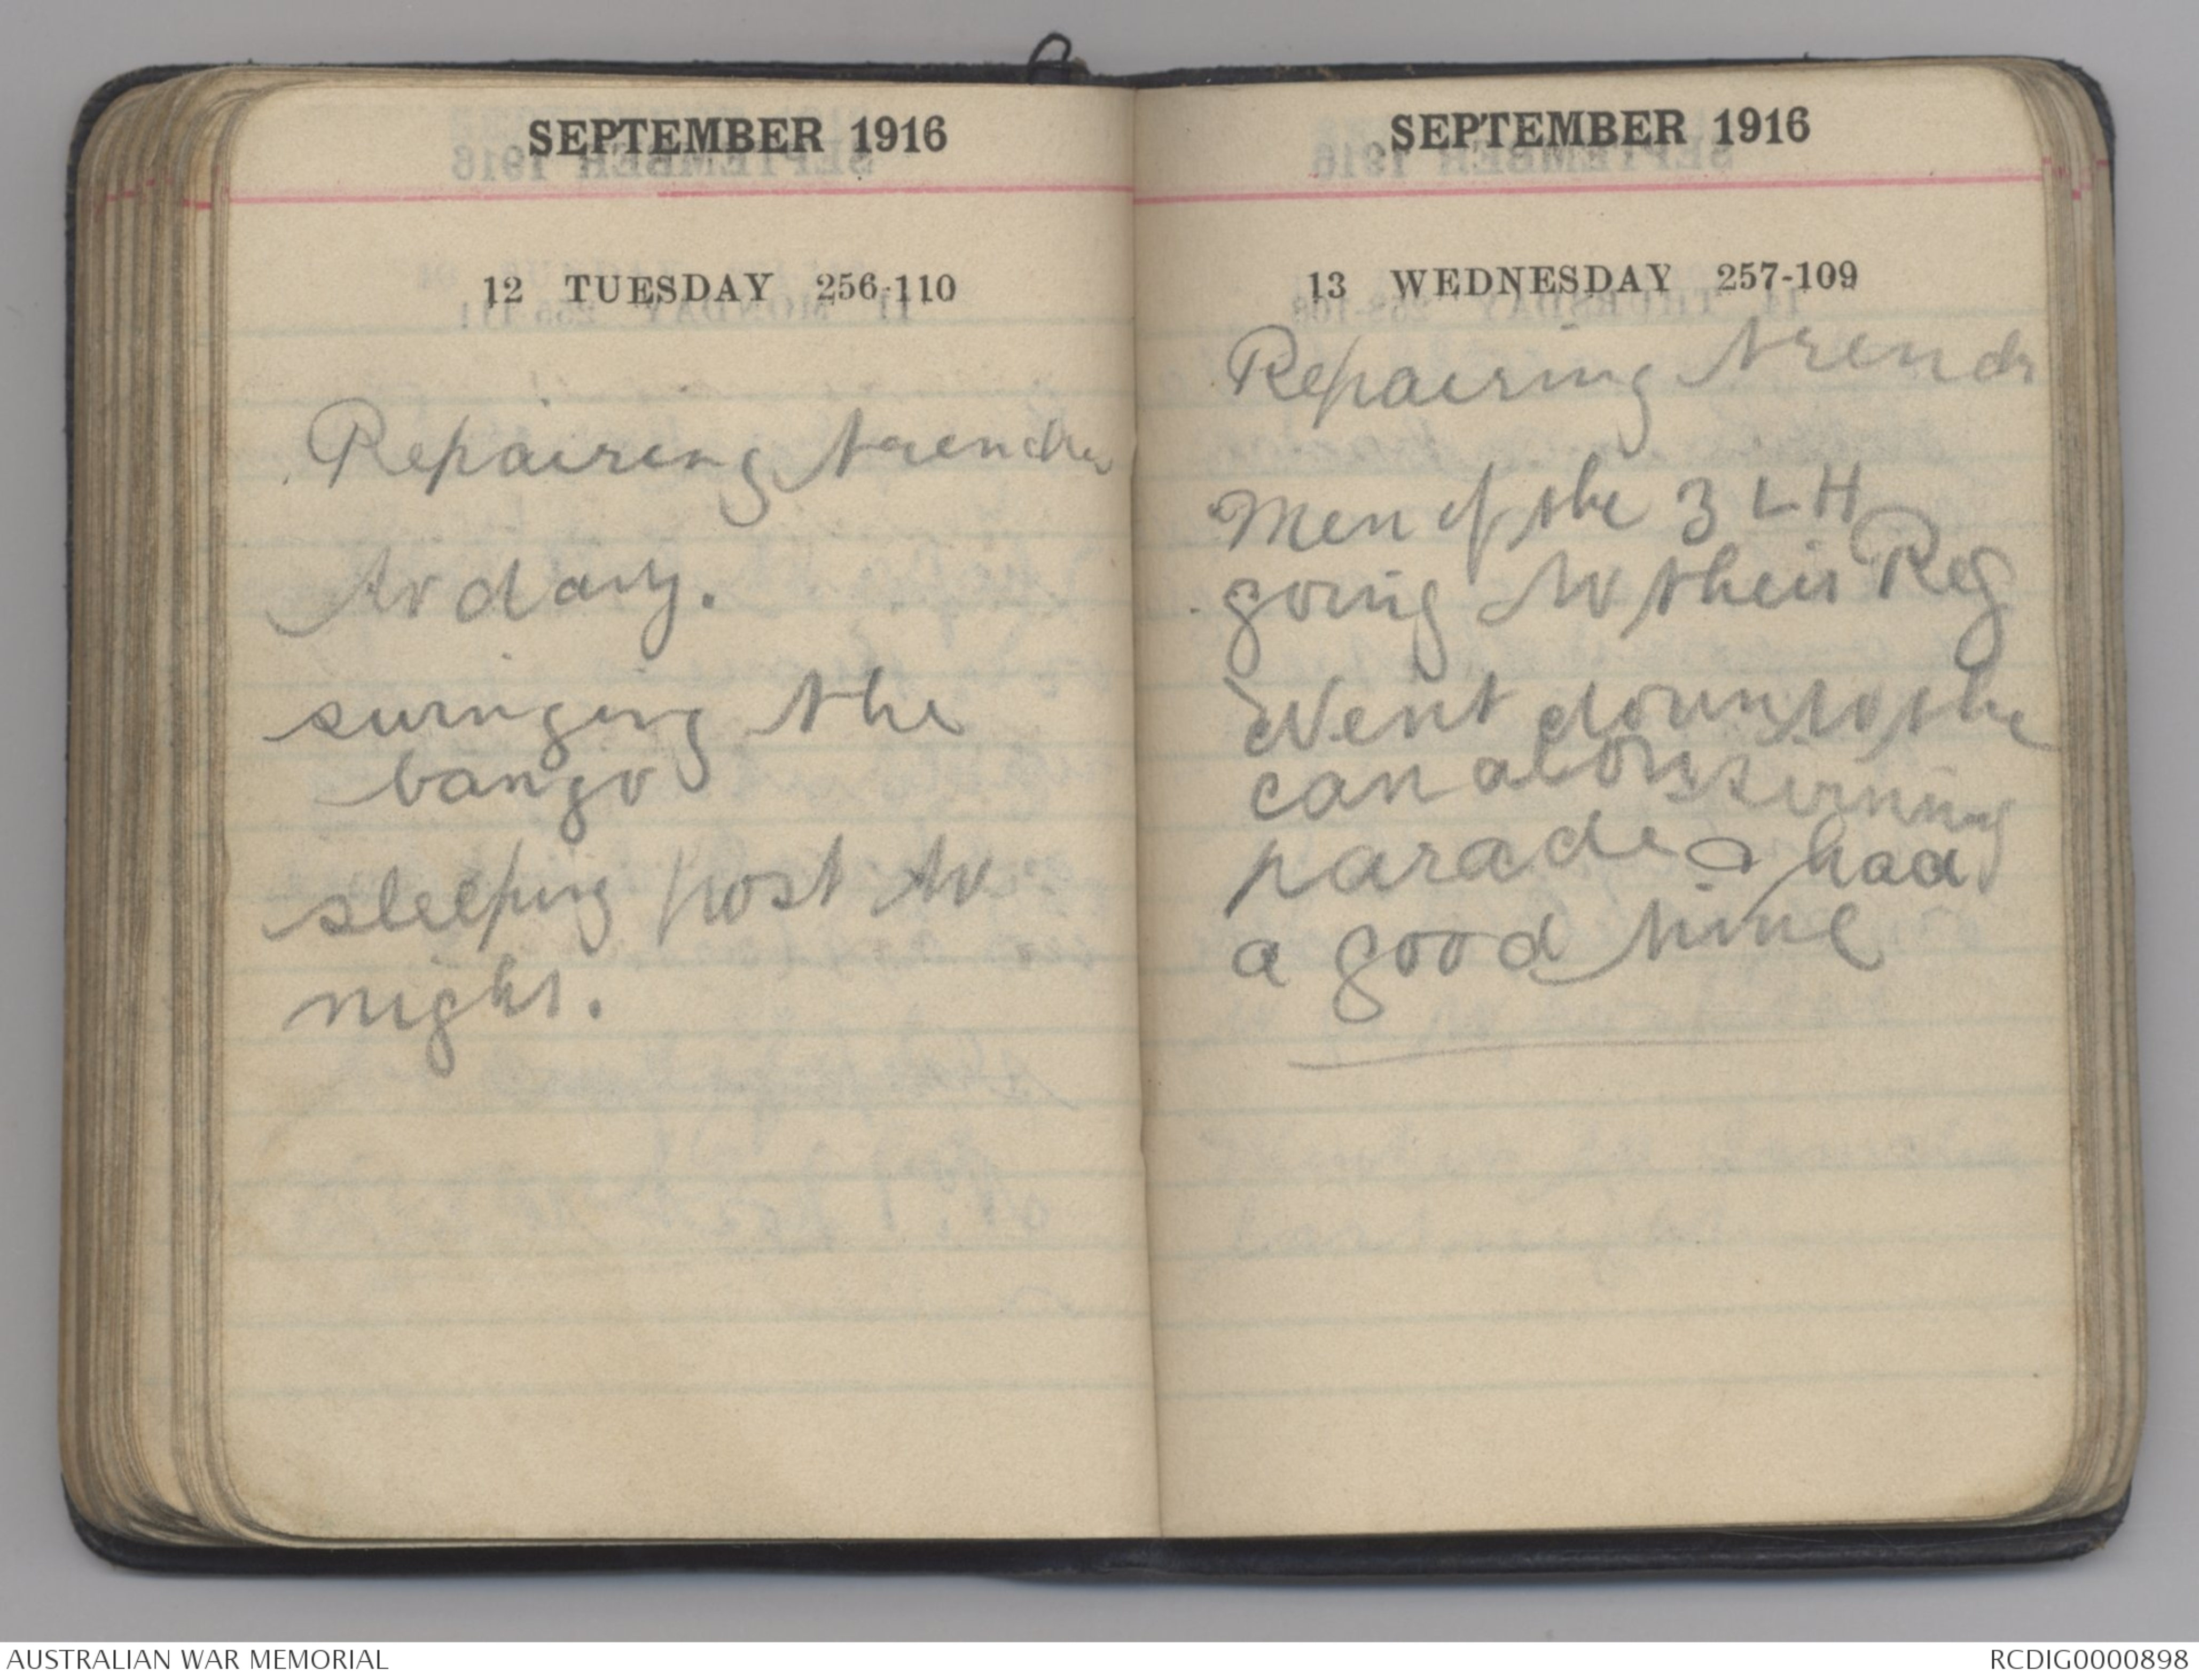 SEPTEMBER 1916
12 TUESDAY 256-110
Repairing trenches
to day.
swinging the
banjo
sleeping post to
night.
SEPTEMBER 1916
13 WEDNESDAY 257-109
Repairing trench
Men of the 3 LH
going to their Reg
Went down to the
canal on swimming
parade & had
a good time
AUSTRALIAN WAR MEMORIAL
RCDIG0000898